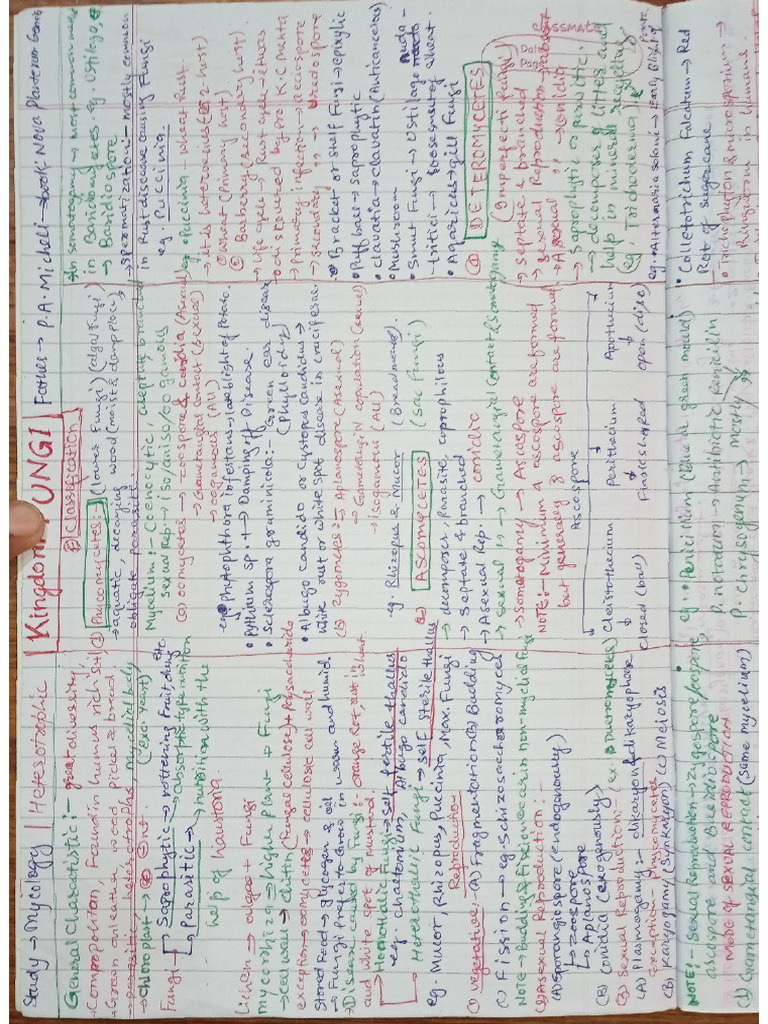 Study → Mycology | Heterotrophic
Kingdom FUNGI
Father → P.A. Micheli
General Charactistic:- great diversity,
→ Compopoliton, Found in humus rich soil,
→ Grown on leather, wood, pickel & bread
→ parasitic, heterotrophs, mycelial body
→ chloroplast → Absent. (exc. yeast)
Fungi → Saprophytic → rottening Fruit, dung etc.
→ absorptive type nutrition
→ Parasitic → nutrition with the
help of haustoria.
lichen → algae + Fungi
mycorrhiza → higher plant + Fungi
→ cell wall → chitin (Fungal cellulose) + Polysaccharide
exception → oomycetes → cellulosic cell wall
Stored Food → glycogen & oil
→ Fungi prefers to grow in warm and humid.
→ Disease caused by Fungi :- orange Rot, rust in wheat
and white spot of mustard
→ Homothallic Fungi → self fertile thallus
e.g. chaetomium, Albugo candida
→ Heterothallic Fungi → self sterile thallus
eg. Mucor, Rhizopus, Puccinia, Max. Fungi
Reproduction
① vegetative:- (A) Fragmentation (B) Budding
(C) Fission → eg. Schizosaccharomyces
Note → Budding & Fission occur in non-mycelial fungi
(2) Asexual Reproduction:-
(A) Sporangiospore (endogenously)
→ Zoospore
→ Aplanospore
(B) Conidia (exogenously)
(3) Sexual Reproduction:-
(A) Plasmogamy :- dikaryon & dikaryophase
exception - phycomycetes
(B) Karyogamy (Synkaryon) (C) Meiosis
NOTE:- Sexual Reproduction → zygospore/oospore,
ascospore and Basidiospore
MODE OF SEXUAL REPRODUCTION
(1) Gametangial contact (Same mycelium)
(B) Classification
① Phycomycetes:- (lower Fungi) (algal fungi)
→ aquatic, decaying wood (moist & damp place),
obligate parasite.
Mycelium:- Coenocytic, aseptate, branched
Sexual Rep:- iso/aniso/oo gamous
(a) oomycetes → zoospore & conidia (Asexual)
→ Gametangial contact (Sexual)
→ oogamous (All)
eg. Phytophthora infestans → late blight of Potato.
• Pythium sp. → Damping off Disease.
• Sclerospora graminicola:- Green ear disease
(Phylloidy)
• Albugo candida or cystopus candidus →
white rust or white spot disease in cruciferae
(b) zygomycetes → Aplanospore (Asexual)
→ Gametangial copulation (sexual)
→ Isogamous (All)
eg. Rhizopus & Mucor (Bread mould).
② ASCOMYCETES (Sac fungi)
→ decomposer, Parasite, coprophilous
→ Septate & branched
→ Asexual Rep. → conidia
→ Sexual " → Gametangial contact (Somatogamy)
→ Somatogamy → Ascospore
NOTE:- Minimum 4 ascospore are formed
but generally 8 ascospore are formed
Ascospore
Cleistothecium Perithecium Apothecium
closed (ball) Flask shaped open (disc)
eg • Penicillium (Blue or green mould)
P. notatum → Antibiotic Penicillin
P. chrysogenum → mostly
→ In somatogamy → most common method
in Basidiomycetes. eg. Ustilago,
→ Basidiospore
→ Spermatization:- mostly common
in Rust disease causing Fungi
eg. Puccinia.
eg. Puccinia → wheat rust.
→ It is heteroecious (2 host)
① wheat (Primary host)
② Barberry (secondary host)
→ Life cycle → Rust cycle
discovered by pro K.C. Mehta
→ Primary infection → aeciospore
→ Secondary " → uredospore
• Bracket or shelf fungi → epixylic
• Puff ball → Saprophytic
• clavatia → clavatin (Anticancerous)
• Mushroom
• Smut Fungi → Ustilago nuda
tritici → loose smut of wheat.
• Agaricus → gill fungi
④ DEUTEROMYCETES
(Imperfecti fungi)
→ Septate & branched
→ Sexual Reproduction → absent
→ Asexual " → Conidia
→ Saprophytic or parasitic.
→ decomposer of litter and
help in mineral recycling
eg. Trichoderma
eg. • Alternaria solani → Early Blight
• Colletotrichum Falcatum → Red
Rot of sugarcane
• Trichophyton & microsporum →
Ringworm in humans